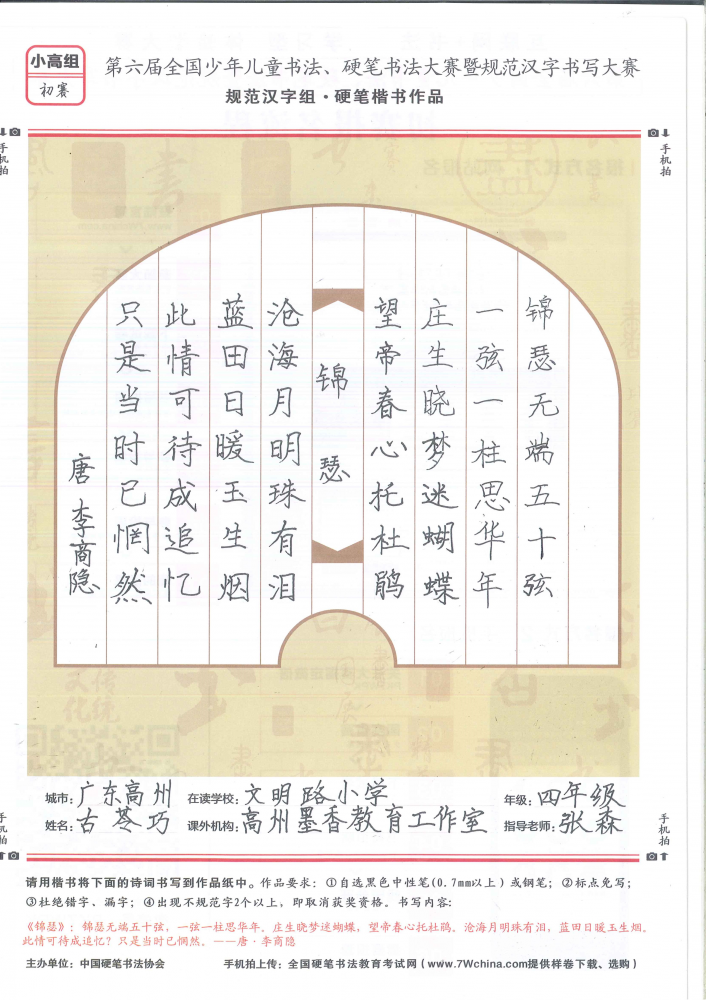 小高组
初赛
第六届全国少年儿童书法、硬笔书法大赛暨规范汉字书写大赛
规范汉字组·硬笔楷书作品
手机拍
手机拍
锦瑟无端五十弦
一弦一柱思华年
庄生晓梦迷蝴蝶
望帝春心托杜鹃
锦瑟
沧海月明珠有泪
蓝田日暖玉生烟
此情可待成追忆
只是当时已惘然
唐 李商隐
城市：广东高州 在读学校：文明路小学 年级：四年级
姓名：古苓巧 课外机构：高州墨香教育工作室 指导老师：张森
手机拍
手机拍
请用楷书将下面的诗词书写到作品纸中。作品要求：①自选黑色中性笔(0.7mm以上）或钢笔；②标点免写；
③杜绝错字、漏字；④出现不规范字2个以上，即取消获奖资格。书写内容：
《锦瑟》：锦瑟无端五十弦，一弦一柱思华年。庄生晓梦迷蝴蝶，望帝春心托杜鹃。沧海月明珠有泪，蓝田日暖玉生烟。
此情可待成追忆？只是当时已惘然。——唐·李商隐
主办单位：中国硬笔书法协会 手机拍上传：全国硬笔书法教育考试网（www.7Wchina.com提供样卷下载、选购）